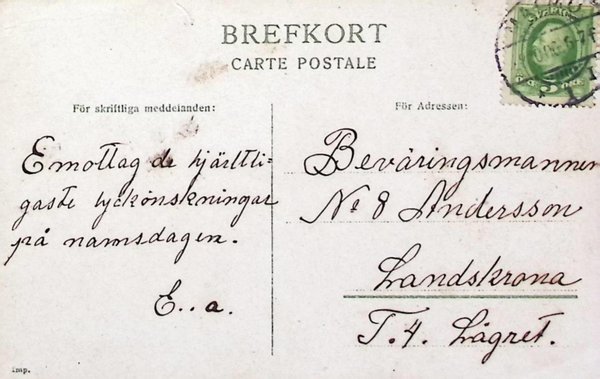 BREFKORT
CARTE POSTALE
För skriftliga meddelanden:
För Adressen:
Emottag de hjärtli-
gaste lyckönskningar
på namsdagen.
E..a.
Beväringsmannen
No 8 Andersson
Landskrona
T.4. Lägret.
Imp.